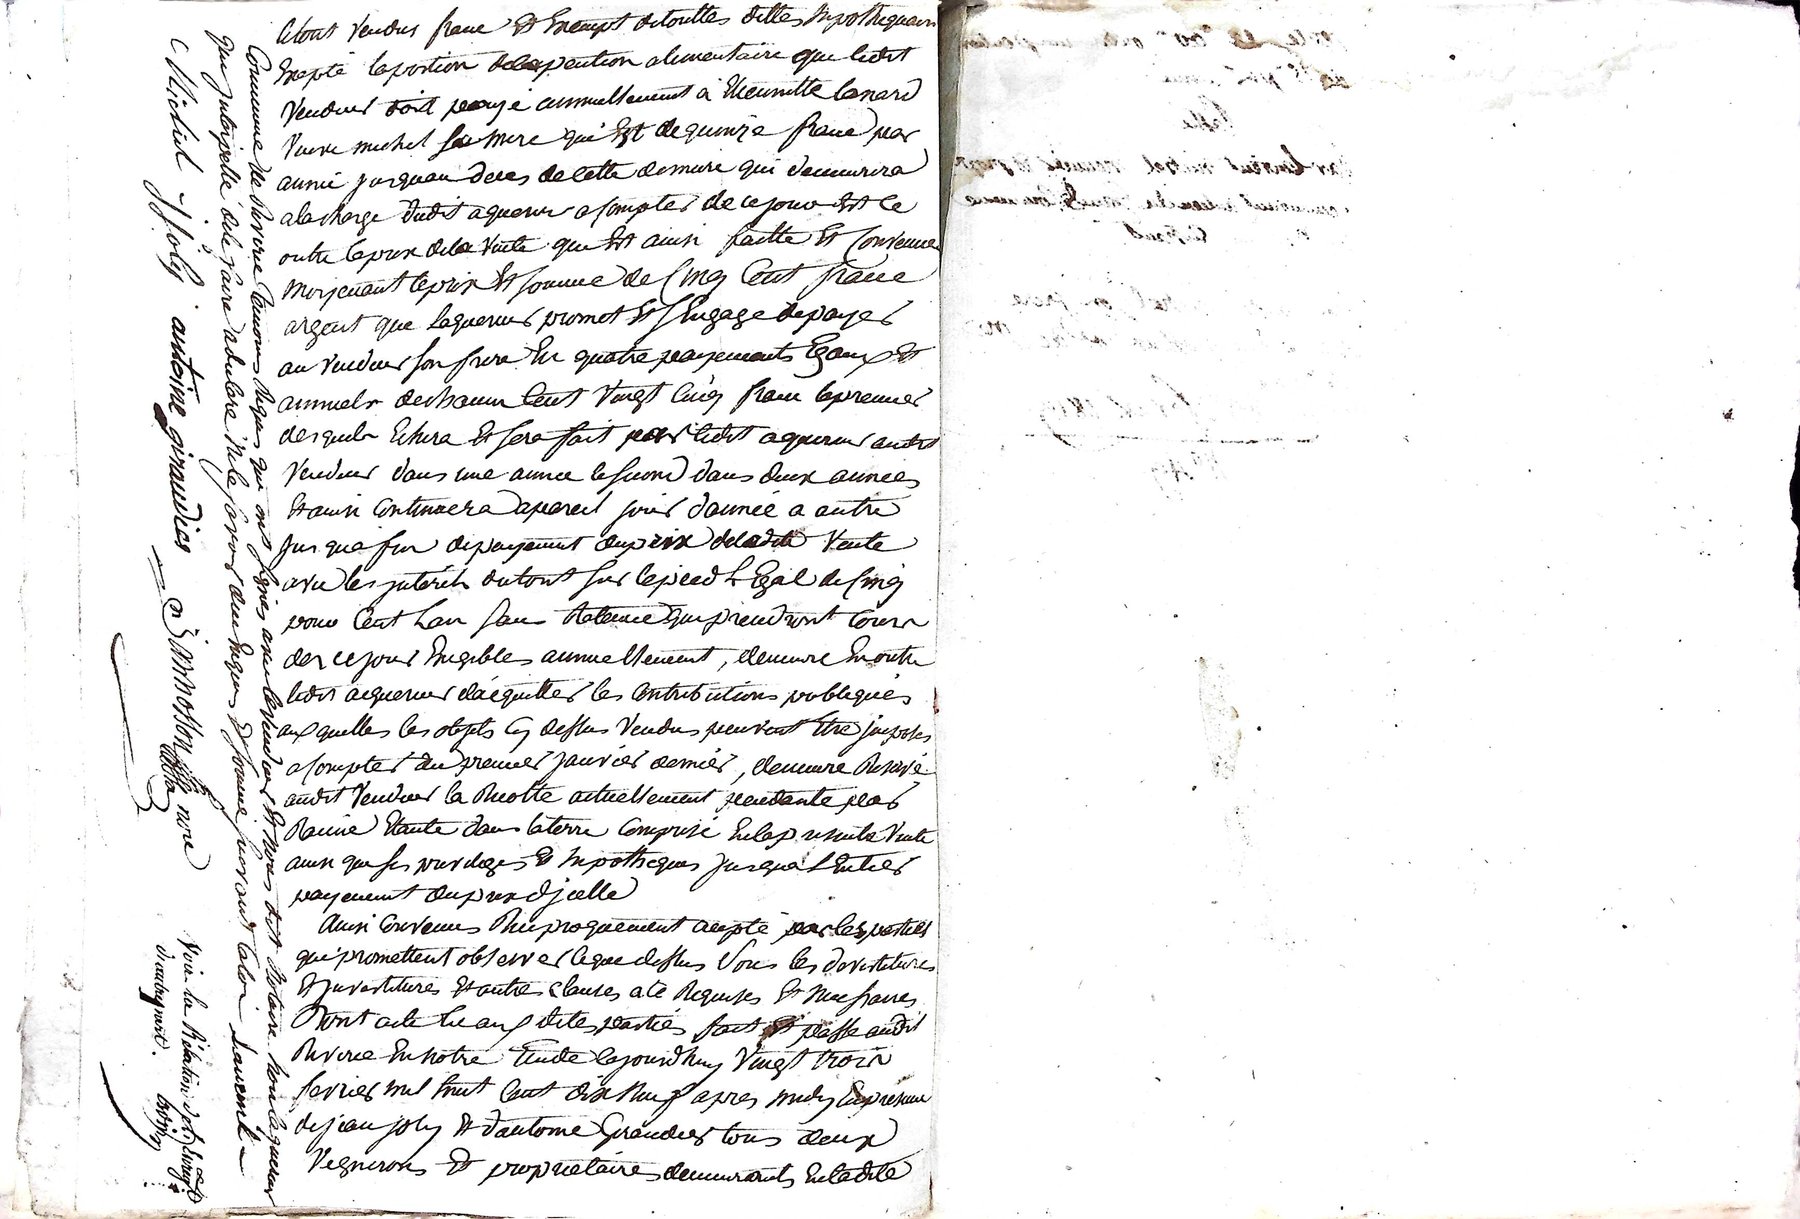 le tout vendus franc et Exempt de touttes dettes hypothequaires
Exepté la portion de la pention alimentaire que ledit
vendeur doit payé annuellement a Etiennette Canard
veuve michel sa mere qui est de quinze franc par
année jusquau deces de cette derniere qui demeurera
a la charge dudit aquereur a compter de ce jour et ce
outre le prix de la vente que est ainsi faitte et convenue
moyenant le prix et somme de cinq cent franc
argent que laquereur promet et sengage de payer
au vendeur son frere En quatre payements Egaux et
annuels de chacun cent vingt cinq franc le premier
desquels Echera et sera fait par ledit aquereur audit
vendeur dans une année le second dans deux années
et ainsi continuera a pareil jour dannée a autre
jusqua fin de payement du prix de ladite vente
avec les interets du tout sur le pied legal de cinq
pour cent lan sans Retenue qui prendront cours
des ce jour Exigibles annuellement, demeure En outre
ledit aquereur dacquitter les contributions publiques
auxquelles les objets cy dessus vendus peuvent être imposés
a compter du premier janvier dernier, demeure Reservé
audit vendeur la Recolte actuellement pendante par
Racine Etante dans la terre comprise En la presente vente
ainsi que ses privileges et hypotheques jusqua lentier
payement du prix dicelle
Ainsi convenus Reciproquement accepté par les parties
qui promettent observer ce que dessus sous les devestitures
et investitures et autres clauses a ce Requises et necessaires
Dont acte lu aux dites parties fait et passé audit
Riverie En notre Etude cejourdhuy vingt trois
fevrier mil huit cent dix neuf apres midy En presence
de jean joly et dantoine Giraudier tous deux
vignerons et proprietaires demeurants En ladite
Commune de Riverie temoins Requis qui ont signés avec le vendeur et nous dit notaire non laquereur
qui interpellé de le faire a declaré ne le savoir de ce Enquis et sommé suivant la loi
Michel j joly antoine giraudier
nore
Voir la Relation de lenregt
dautre part.